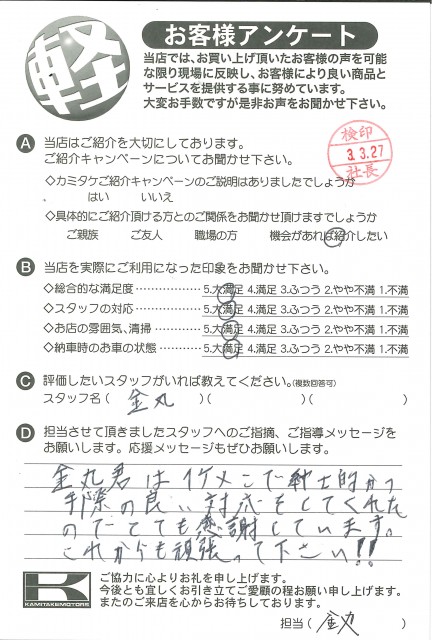 軽
お客様アンケート
当店では、お買い上げ頂いたお客様の声を可能
な限り現場に反映し、お客様により良い商品と
サービスを提供する事に努めています。
大変お手数ですが是非お声をお聞かせ下さい。
検印
3.3.27
社長
A 当店はご紹介を大切にしております。
ご紹介キャンペーンについてお聞かせ下さい。
◇カミタケご紹介キャンペーンのご説明はありましたでしょうか
はい いいえ
◇具体的にご紹介頂ける方とのご関係をお聞かせ頂けますでしょうか
ご親族 ご友人 職場の方 機会があれば紹介したい
B 当店を実際にご利用になった印象をお聞かせ下さい。
◇総合的な満足度 5.大満足 4.満足 3.ふつう 2.やや不満 1.不満
◇スタッフの対応 5.大満足 4.満足 3.ふつう 2.やや不満 1.不満
◇お店の雰囲気、清掃 5.大満足 4.満足 3.ふつう 2.やや不満 1.不満
◇納車時のお車の状態 5.大満足 4.満足 3.ふつう 2.やや不満 1.不満
C 評価したいスタッフがいれば教えてください。(複数回答可)
スタッフ名( 金丸 )( )( )
D 担当させて頂きましたスタッフへのご指摘、ご指導メッセージを
お願いします。応援メッセージもぜひお願いします。
金丸君はイケメンで紳士的かつ
手際の良い対応をしてくれた
のでとても感謝しています。
これからも頑張って下さい!!
K
KAMITAKEMOTORS
ご協力に心よりお礼を申し上げます。
今後とも宜しくお引き立てご愛顧の程お願い申し上げます。
またのご来店を心からお待ちしております。
担当( 金丸 )